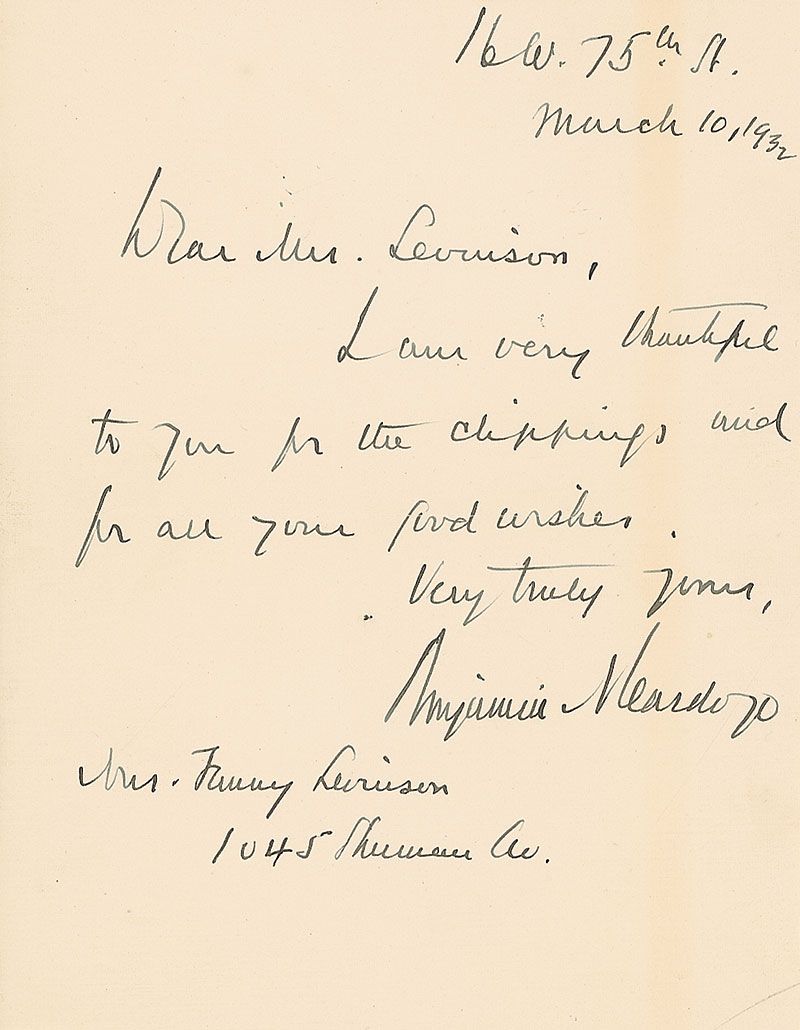 16 W. 75th St.
March 10, 1932
Dear Mrs. Levinison,
I am very thankful
to you for the clippings and
for all your good wishes.
Very truly yours,
Benjamin N Cardozo
Mrs. Fanny Levinison
1045 Sherman Av.